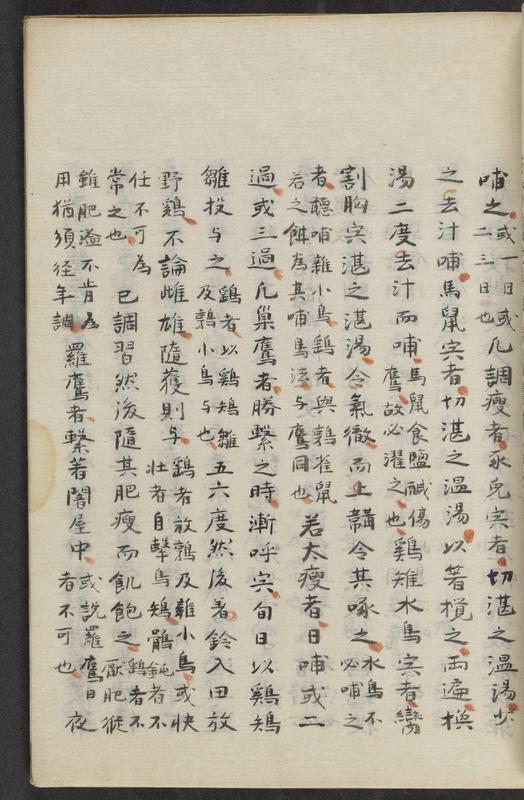 哺之或一日或二三日也凡調瘦者豕兔宍者切湛之温湯少
之去汁哺馬鼠宍者切湛之温湯以箸攪之両遍換
湯二度去汁而哺馬鼠食鹽醎傷鷹故必濯之也鷄雉水鳥宍者臠
割胸宍湛之湛湯令氣徹而上韝令其啄之水鳥不必哺之
者聴哺雜小鳥鷂者與鶉雀鼠若之餌為其哺鳥法与鷹同也若太瘦者日哺或二
過或三過凡巢鷹者勝繫之時漸呼宍旬日以鷄鴙
雛投与之鷂者以鷄鴙雛及鶉小鳥与也五六度然後著鈴入田放
野鷄不論雌雄隨獲則与鷂者放鶉及雜小鳥或快壮者自擊鳥鴙鶻鈍者不
任不可為常之也已調習然後隨其肥瘦而飢飽之鷂者不厭肥縱
雖肥溢不肯為用猶須経年調羅鷹者繫著闇屋中或説羅鷹日夜者不可也